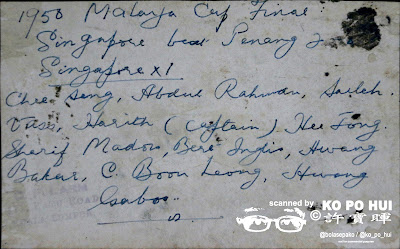 1950 Malaya Cup Final.
Singapore beat Penang 2
Singapore XI
Chee Seng, Abdul Rahman, Salleh.
Harith (Captain) Hee Fong.
Sharif Madon, Bert Inglis, Awang
Bakar, C. Boon Leong, Awang
scanned by
© KO PO HUI
許寶暉
@bolasepako / @ko_po_hui